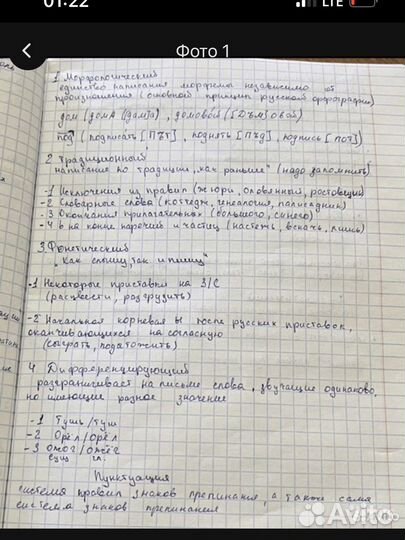 01:22
LTE
Фото 1
1 Морфологический
единство написания морфемы независимо от
произношения (основной принцип русской орфографии)
дом (домА (дамА), домовой ([Дъм]овой)
под (подписать [ПЪт], поднять [Пъд], подпись [пот])
2 Традиционный
написание по традиции, "как раньше" (надо запомнить)
-1 Исключения из правил (жюри, оловянный, ростовщик)
-2 Словарные слова (коттедж, генеалогия, палисадник)
-3 Окончания прилагательных (большого, синего)
-4 ь на конце наречий и частиц (настежь, вскачь, лишь)
3. Фонетический
"Как слышу, так и пишу"
-1 Некоторые приставки на З/С
(расцвести, разгрузить)
-2 Начальная корневая ы после русских приставок,
оканчивающихся на согласную
(сыграть, подытожить)
4 Дифференцирующий
разграничивает на письме слова, звучащие одинаково,
но имеющие разное значение
-1 Тушь/туш
-2 Орёл/орёл
-3 ожог/ожёг
сущ гл.
Пунктуация
система правил знаков препинания, а также сама
система знаков препинания
Avito